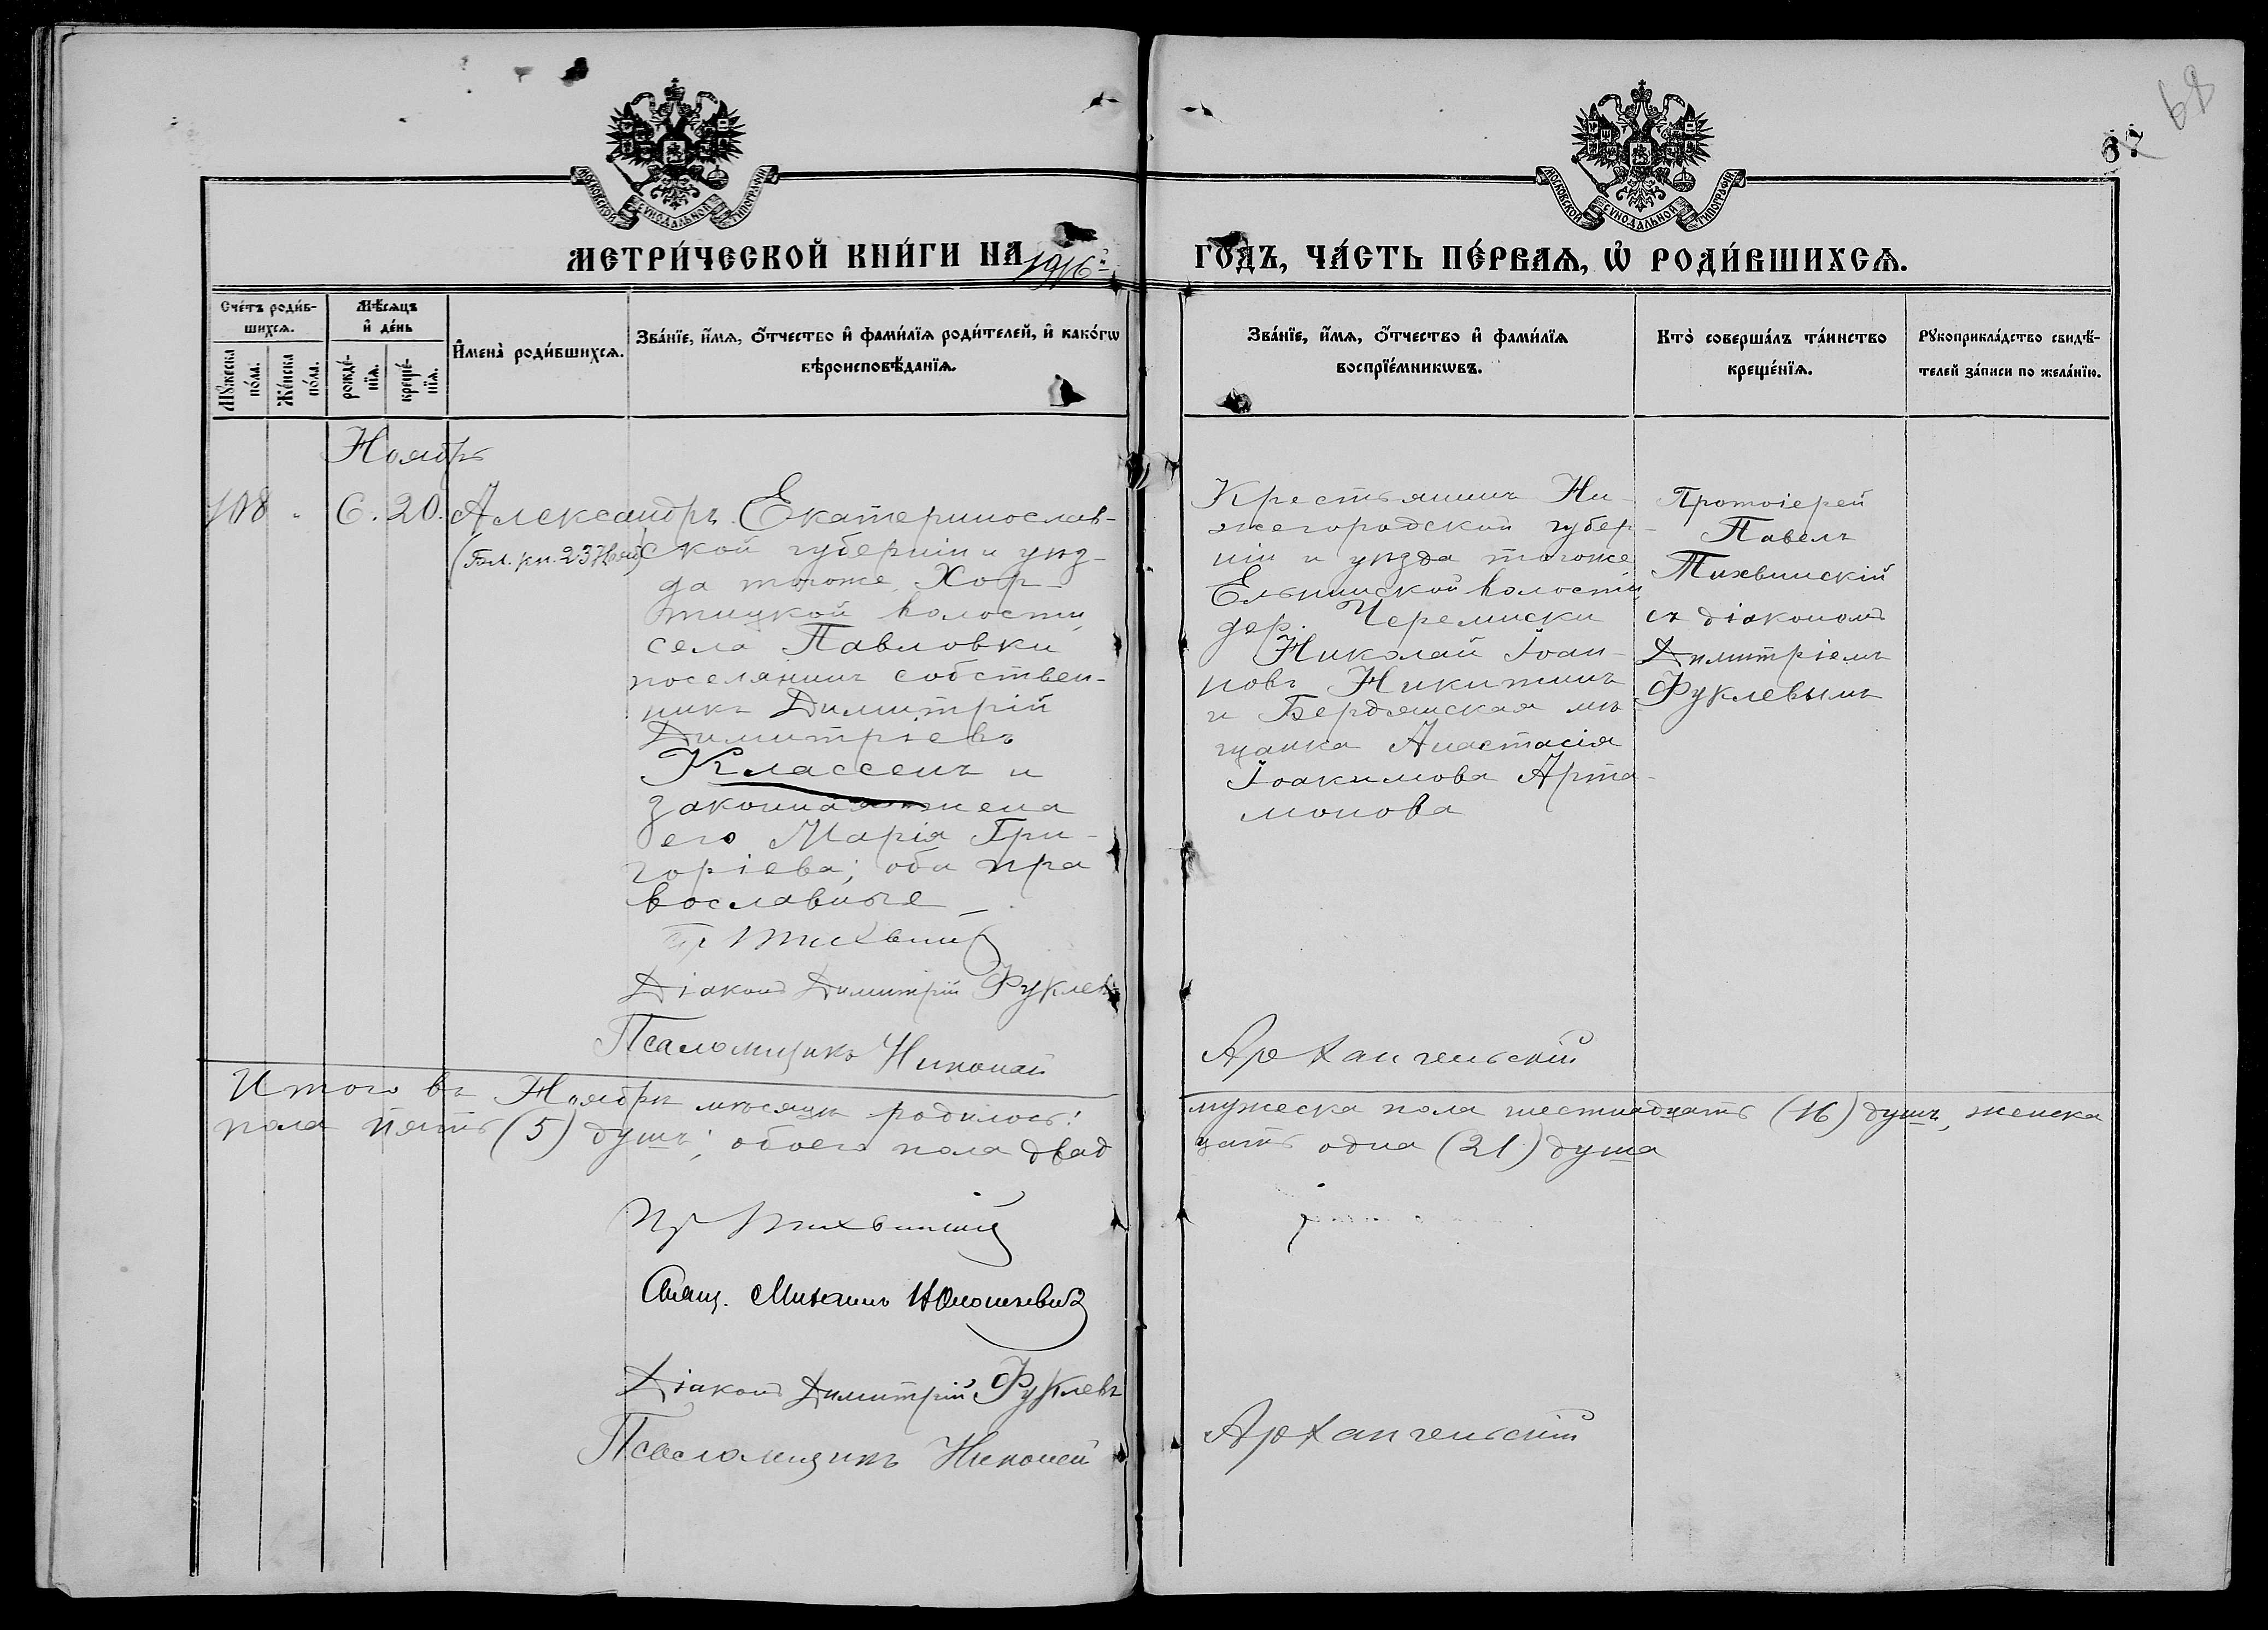 68
67
МОСКОВСКОЙ СѴНОДАЛЬНОЙ ТИПОГРАФІИ
МОСКОВСКОЙ СѴНОДАЛЬНОЙ ТИПОГРАФІИ
МЕТРИ́ЧЕСКОЙ КНИ́ГИ НА 1916й
ГО́ДЪ, ЧА́СТЬ ПЕ́РВАѦ, Ѡ҆ РОДИ́ВШИХСѦ.
Сче́тъ роди́в-
шихсѧ.
Мꙋ́жеска по́ла.
Же́нска по́ла.
Мѣ́сѧцъ
и҆ де́нь
рожде́-
нїѧ.
креще́-
нїѧ.
И҆мена̀ роди́вшихсѧ.
Зва́нїе, и҆́мѧ, ѻ҆́тчество и҆ фами́лїѧ роди́телей, и҆ како́гѡ
вѣроисповѣ́данїѧ.
Зва́нїе, и҆́мѧ, ѻ҆́тчество и҆ фами́лїѧ
воспрїе́мникѡвъ.
Кто̀ соверша́лъ та́инство
креще́нїѧ.
Рꙋкоприкла́дство свидѣ́-
телей за́писи по жела́нїю.
Ноябрь
108
6. 20.
Александръ
Екатеринослав-
ской губерніи и уѣз-
да тогоже Хор-
тицкой волости
села Павловки
поселянинъ собствен-
никъ Димитрій
Димитріевъ
Классенъ и
законная жена
его Марія Гри-
горіева; оба пра
вославные
Пр Тихвинск
Діаконъ Димитрій Фуклевъ
Псаломщикъ Николай
Крестьянинъ Ни-
жегородской губер-
ніи и уѣзда тогоже
Ельнинской волости
дер. Черемиски
Николай Іоан-
новъ Никитинъ
и Бердянская мѣ
щанка Анастасія
Іоакимова Арта-
монова
Протоіерей
Павелъ
Тихвинскій
съ діакономъ
Димитріемъ
Фуклевымъ
Архангельскій
Итого въ Ноябрѣ мѣсяцѣ родилось: мужеска пола шестнадцать (16) душъ, женска
пола пять (5) душъ; обоего пола двад
цать одна (21) душа
Пр Тихвинскій
Свящ. Михаилъ
Діаконъ Димитрій Фуклевъ
Псаломщикъ Николай
Архангельскій